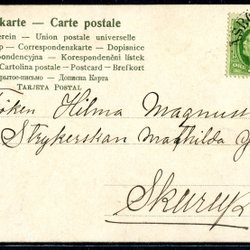 karte — Carte postale
erein — Union postale universelle
p — Correspondenzkarte — Dopisnice
pondencyjna — Korespondenční lístek
Cartolina postale — Postcard — Brefkort
крытое письмо — Дописна Карта
TARJETA POSTAL
öken Hilma Magnus
Strykerskan Mathilda
Skurup